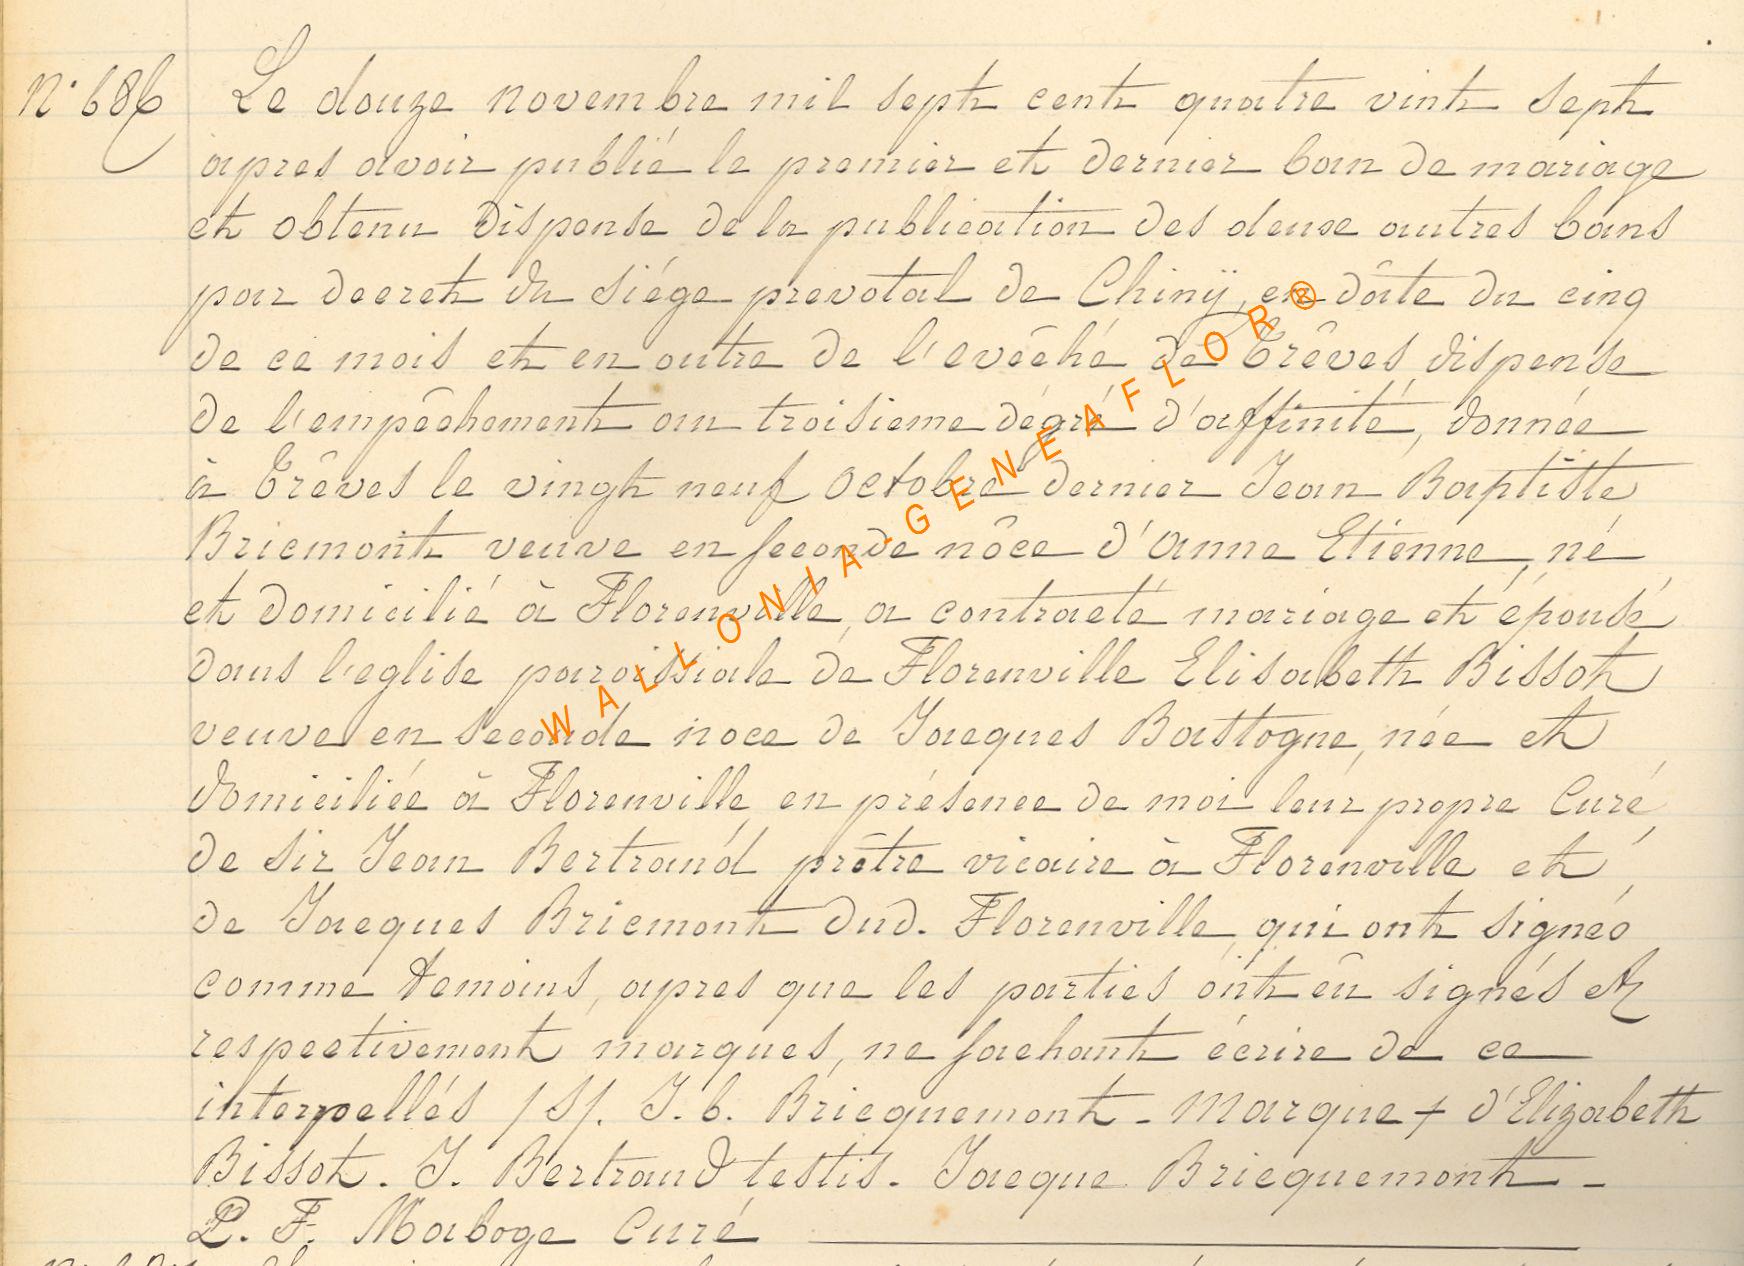 N° 686 Le douze novembre mil sept cent quatre vint sept
apres avoir publié le premier et dernier ban de mariage
et obtenu dispense de la publication des deuxe autres bans
par decret du siége prevotal de Chinÿ, en dâte du cinq
de ce mois et en outre de l'evêché de Trêves dispense
de l'empêchement au troisieme dégré d'affinité, donnée
à Trêves le vingt neuf octobre dernier Jean Baptiste
Bricmont veuve en seconde nôce d'Anne Etienne, né
et domicilié à Florenville, a contracté mariage et épousé
dans l'eglise paroissiale de Florenville Elisabeth Bissot
veuve en seconde noce de Jacques Bastogne, née et
domiciliée à Florenville, en présence de moi leur propre Curé,
de sir Jean Bertrand prêtre vicaire à Florenville et
de Jacques Bricmont dud. Florenville, qui ont signés
comme temoins, apres que les parties ont eû signés et
respectivement marqués, ne sachant écrire de ce
interpellés /S/. J. b. Bricquemont - Marque + d'Elizabeth
Bissot. J. Bertrand testis. Jacque Bricquemont -
P. F. Maboge Curé
WALLONIA-GENEAFLOR®